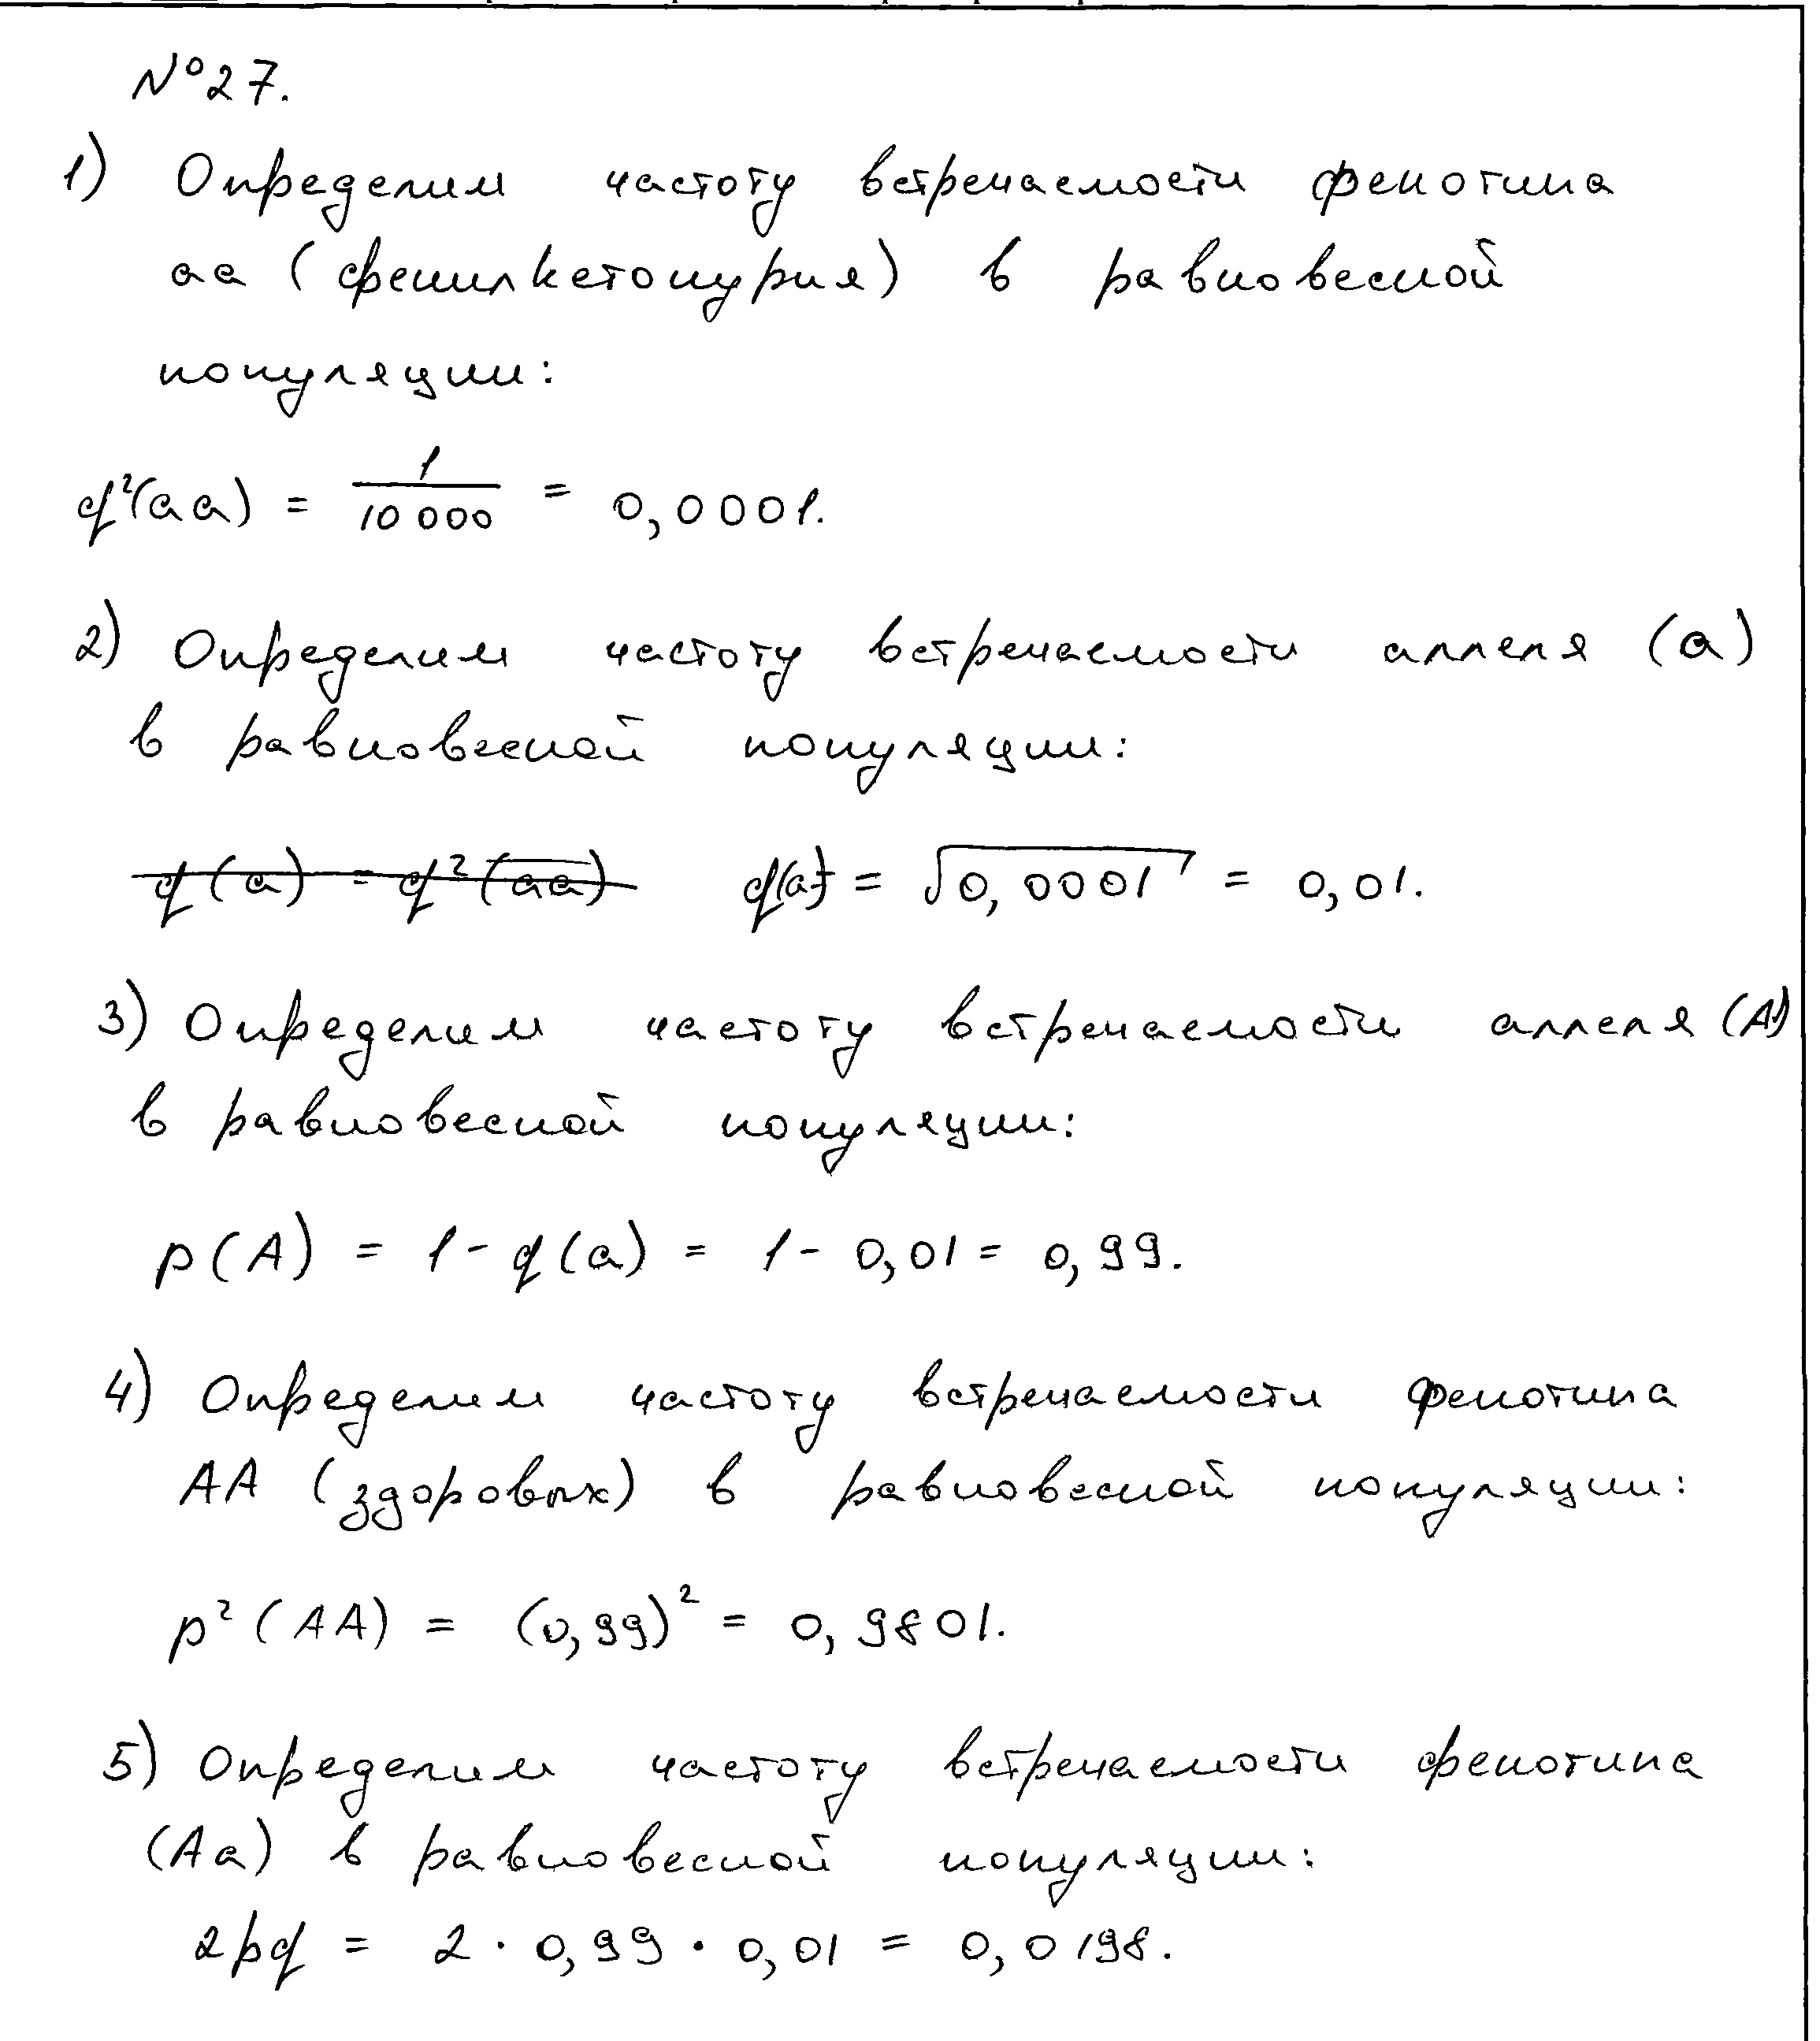 №27.
1) Определим частоту встречаемости фенотипа
аа (фенилкетонурия) в равновесной
популяции:
q²(аа) = 1/10 000 = 0,0001.
2) Определим частоту встречаемости аллеля (а)
в равновесной популяции:
q(а) = q²(аа) q(а) = √0,0001 = 0,01.
3) Определим частоту встречаемости аллеля (А)
в равновесной популяции:
p(А) = 1 - q(а) = 1 - 0,01 = 0,99.
4) Определим частоту встречаемости фенотипа
АА (здоровых) в равновесной популяции:
p²(АА) = (0,99)² = 0,9801.
5) Определим частоту встречаемости фенотипа
(Аа) в равновесной популяции:
2pq = 2 · 0,99 · 0,01 = 0,0198.